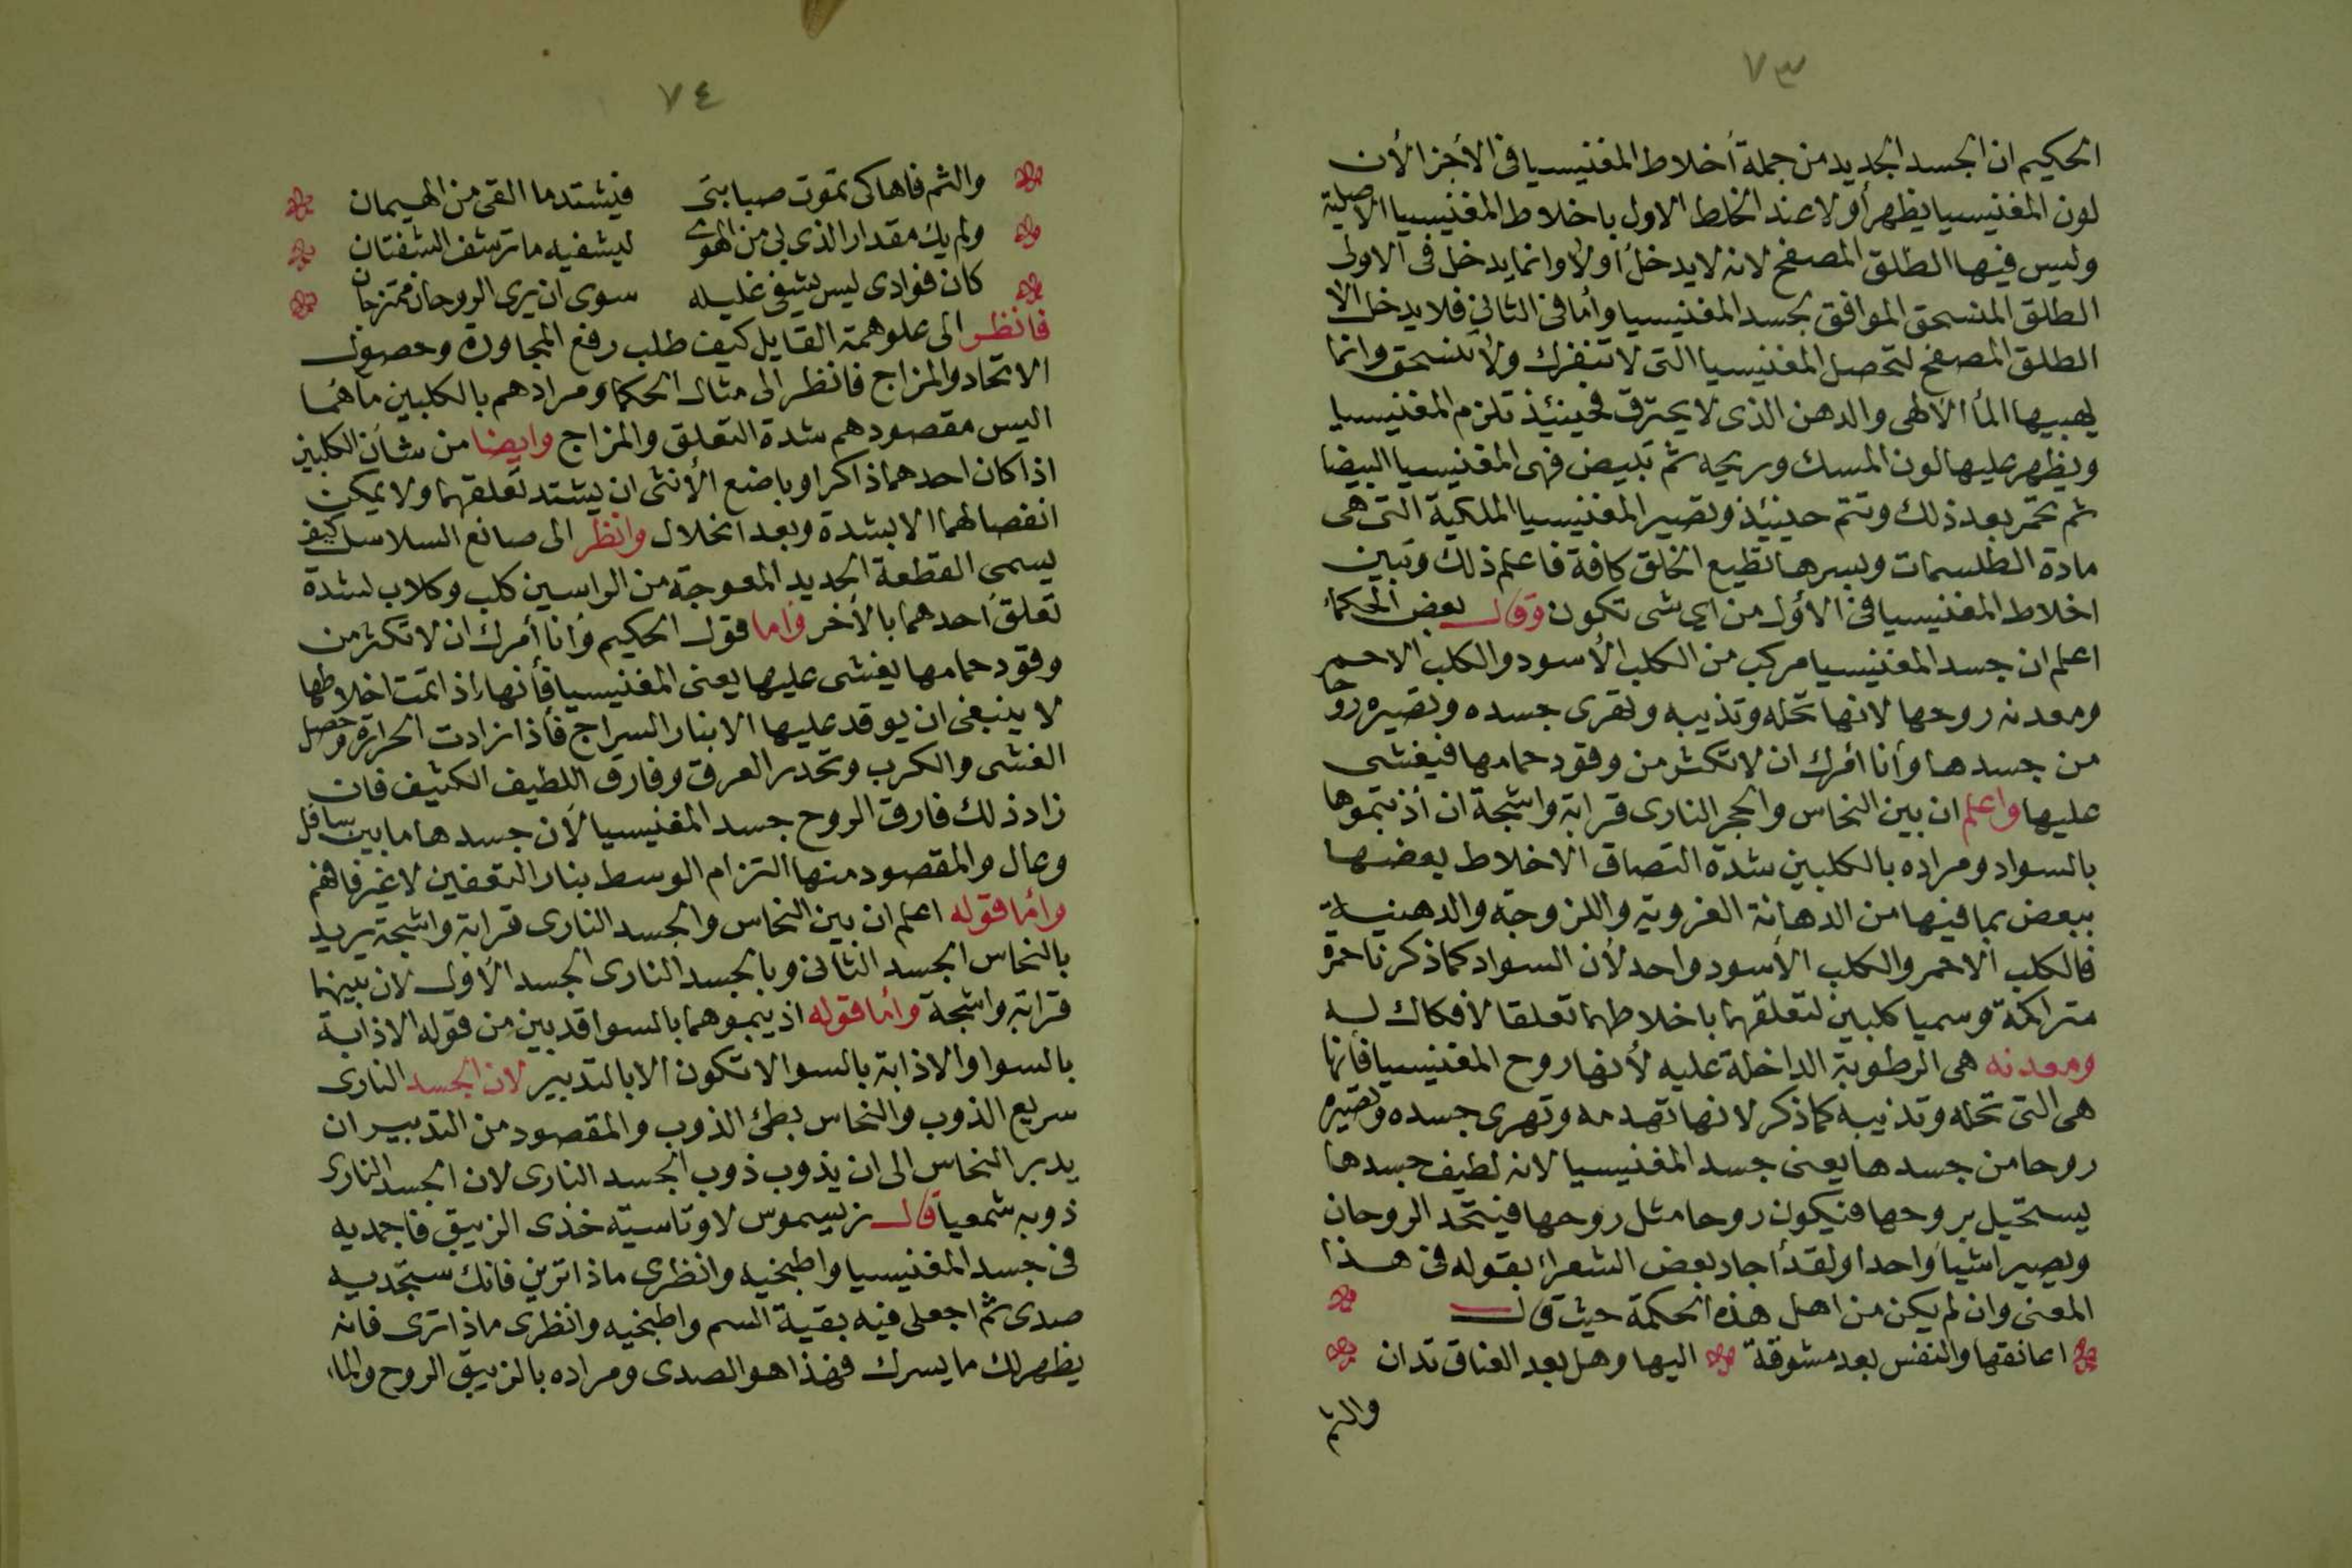 ٧٣
الحكيم ان الجسد الجديد من جملة أخلاط المغنيسيا فى الأجز الأن
لون المغنيسيا يظهر أولا عند الخلط الاول باخلاط المغنيسيا الاصلية
وليس فيها الطلق المصفح لانه لا يدخل أولا وانما يدخل فى الاولى
الطلق المنسحق الموافق بجسد المغنيسيا وأما فى الثانى فلا يدخل الا
الطلق المصفح لتحصل المغنيسيا التى لا تنفرك ولا تنسحق وانما
يهبيها المأ الالهى والدهن الذى لا يحترق فحينئذ تلزم المغنيسيا
ويظهر عليها لون المسك وريحه ثم تبيض فهى المغنيسيا البيضا
ثم تحمر بعد ذلك وتتم حينئذ وتصير المغنيسيا الملكية التى هى
مادة الطلسمات وبسرها تطيع الخلق كافة فاعلم ذلك وتبين
اخلاط المغنيسيا فى الأول من اى شى تكون وقال بعض الحكماء
اعلم ان جسد المغنيسيا مركب من الكلب الأسود والكلب الاحمر
ومعدنه روحها لانها تحله وتذيبه وتهرى جسده وتصيره روحا
من جسدها وأنا أمرك ان لا تكثر من وقود حمامها فيغشى
عليها واعلم ان بين النحاس والحجر النارى قرابة واشجة ان أذبتموها
بالسواد ومراده بالكلبين شدة التصاق الاخلاط بعضها
ببعض بما فيها من الدهانة الغروية واللزوجة والدهنية
فالكلب الاحمر والكلب الأسود واحد لأن السواد كما ذكرنا حمرة
متراكمة وسميا كلبين لتعلقهما باخلاطهما تعلقا لا فكاك له
ومعدنه هى الرطوبة الداخلة عليه لأنها روح المغنيسيا فانها
هى التى تحله وتذيبه كما ذكر لانها تهدمه وتهرى جسده وتصيره
روحا من جسدها يعنى جسد المغنيسيا لانه لطيف جسدها
يستحيل بروحها فيكون روحا مثل روحها فيتحد الروحان
ويصيرا شيأ واحدا ولقد أجاد بعض الشعراء بقوله فى هذا
المعنى وان لم يكن من اهل هذه الحكمة حيث قال
اعانقها والنفس بعد مشوقة اليها وهل بعد العناق تدان
والثم
٧٤
والثم فاها كى تموت صبابتى فيشتد ما القى من الهيمان
ولم يك مقدار الذى بى من الهوى ليشفيه ما ترشف الشفتان
كان فوادى ليس يشفى غليله سوى ان يرى الروحان ممتزجان
فانظر الى علو همة القايل كيف طلب رفع المجاورة وحصول
الاتحاد والمزاج فانظر الى مثال الحكما ومرادهم بالكلبين ما هما
اليس مقصودهم شدة التعلق والمزاج وايضا من شأن الكلبين
اذا كان احدهما ذاكرا وباضع الأنثى ان يشتد تعلقهما ولا يمكن
انفصالهما الا بشدة وبعد انحلال وانظر الى صانع السلاسل كيف
يسمى القطعة الحديد المعوجة من الراسين كلب وكلاب لشدة
تعلق أحدهما بالأخر وأما قول الحكيم وأنا أمرك ان لا تكثر من
وقود حمامها يغشى عليها يعنى المغنيسيا فأنها اذا تمت اخلاطها
لا ينبغى ان يوقد عليها الا بنار السراج فأذا زادت الحرارة وحصل
الغشى والكرب وتحدر العرق وفارق اللطيف الكثيف فان
زاد ذلك فارق الروح جسد المغنيسيا لأن جسدها ما بين سافل
وعال والمقصود منها التزام الوسط بنار التعفين لا غير فافهم
وأما قوله اعلم ان بين النحاس والجسد النارى قرابة واشجة يريد
بالنحاس الجسد الثانى وبالجسد النارى الجسد الأول لان بينهما
قرابة واشجة وأما قوله اذيبموهما بالسوا قد بين من قوله الاذابة
بالسوا والاذابة بالسوا لا تكون الا بالتدبير لان الجسد النارى
سريع الذوب والنحاس بطئ الذوب والمقصود من التدبير ان
يدبر النحاس الى ان يذوب ذوب الجسد النارى لان الجسد النارى
ذوبه شمعيا قال زيسموس لاوتاسية خذى الزيبق فاجمديه
فى جسد المغنيسيا واطبخيه وانظرى ماذا ترين فانك ستجديه
صدى ثم اجعلى فيه بقية السم واطبخيه وانظرى ماذا ترى فانه
يظهر لك ما يسرك فهذا هو الصدى ومراده بالزيبق الروح والماء